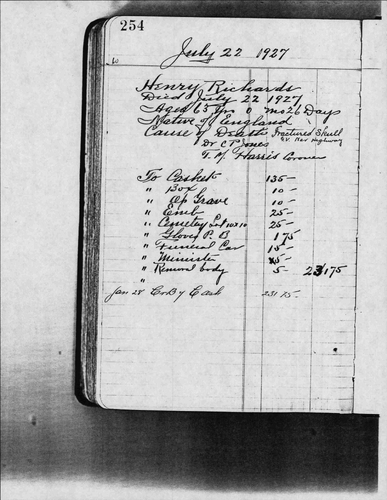 254
July 22 1927
Henry Richards
Died July 22 1927
Aged 65 Yrs 0 Mos 26 Days
Native of England
Cause of Death Fractured Skull
Highway
Dr C P Jones
T. M. Harris Coroner
To Casket 135-
" Box 10-
" Op Grave 10-
" Emb 25-
" Cemetey Lot 10310 25-
" Gloves P. B 1 75
" Funeral Car 15-
" Minister 5-
" Removal body 5- 231 75
"
Jan 28 Cr By Cash 231 75-